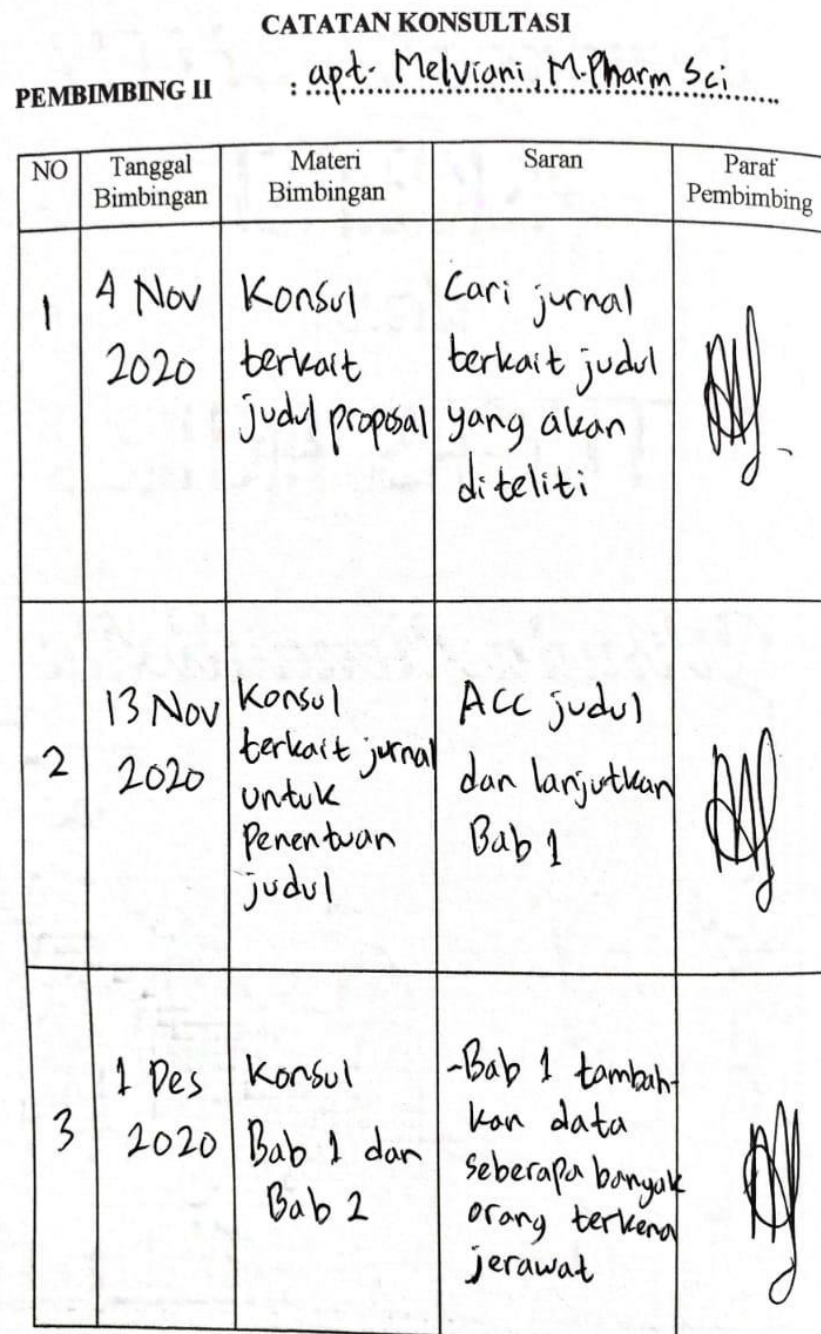 CATATAN KONSULTASI
PEMBIMBING II : apt. Melviani, M.Pharm Sci
NO Tanggal Bimbingan Materi Bimbingan Saran Paraf Pembimbing
1
4 Nov
2020
Konsul
terkait
judul proposal
Cari jurnal
terkait judul
yang akan
diteliti
2
13 Nov
2020
Konsul
terkait jurnal
untuk
Penentuan
judul
ACC judul
dan lanjutkan
Bab 1
3
1 Des
2020
Konsul
Bab 1 dan
Bab 2
-Bab 1 tambah-
kan data
seberapa banyak
orang terkena
jerawat